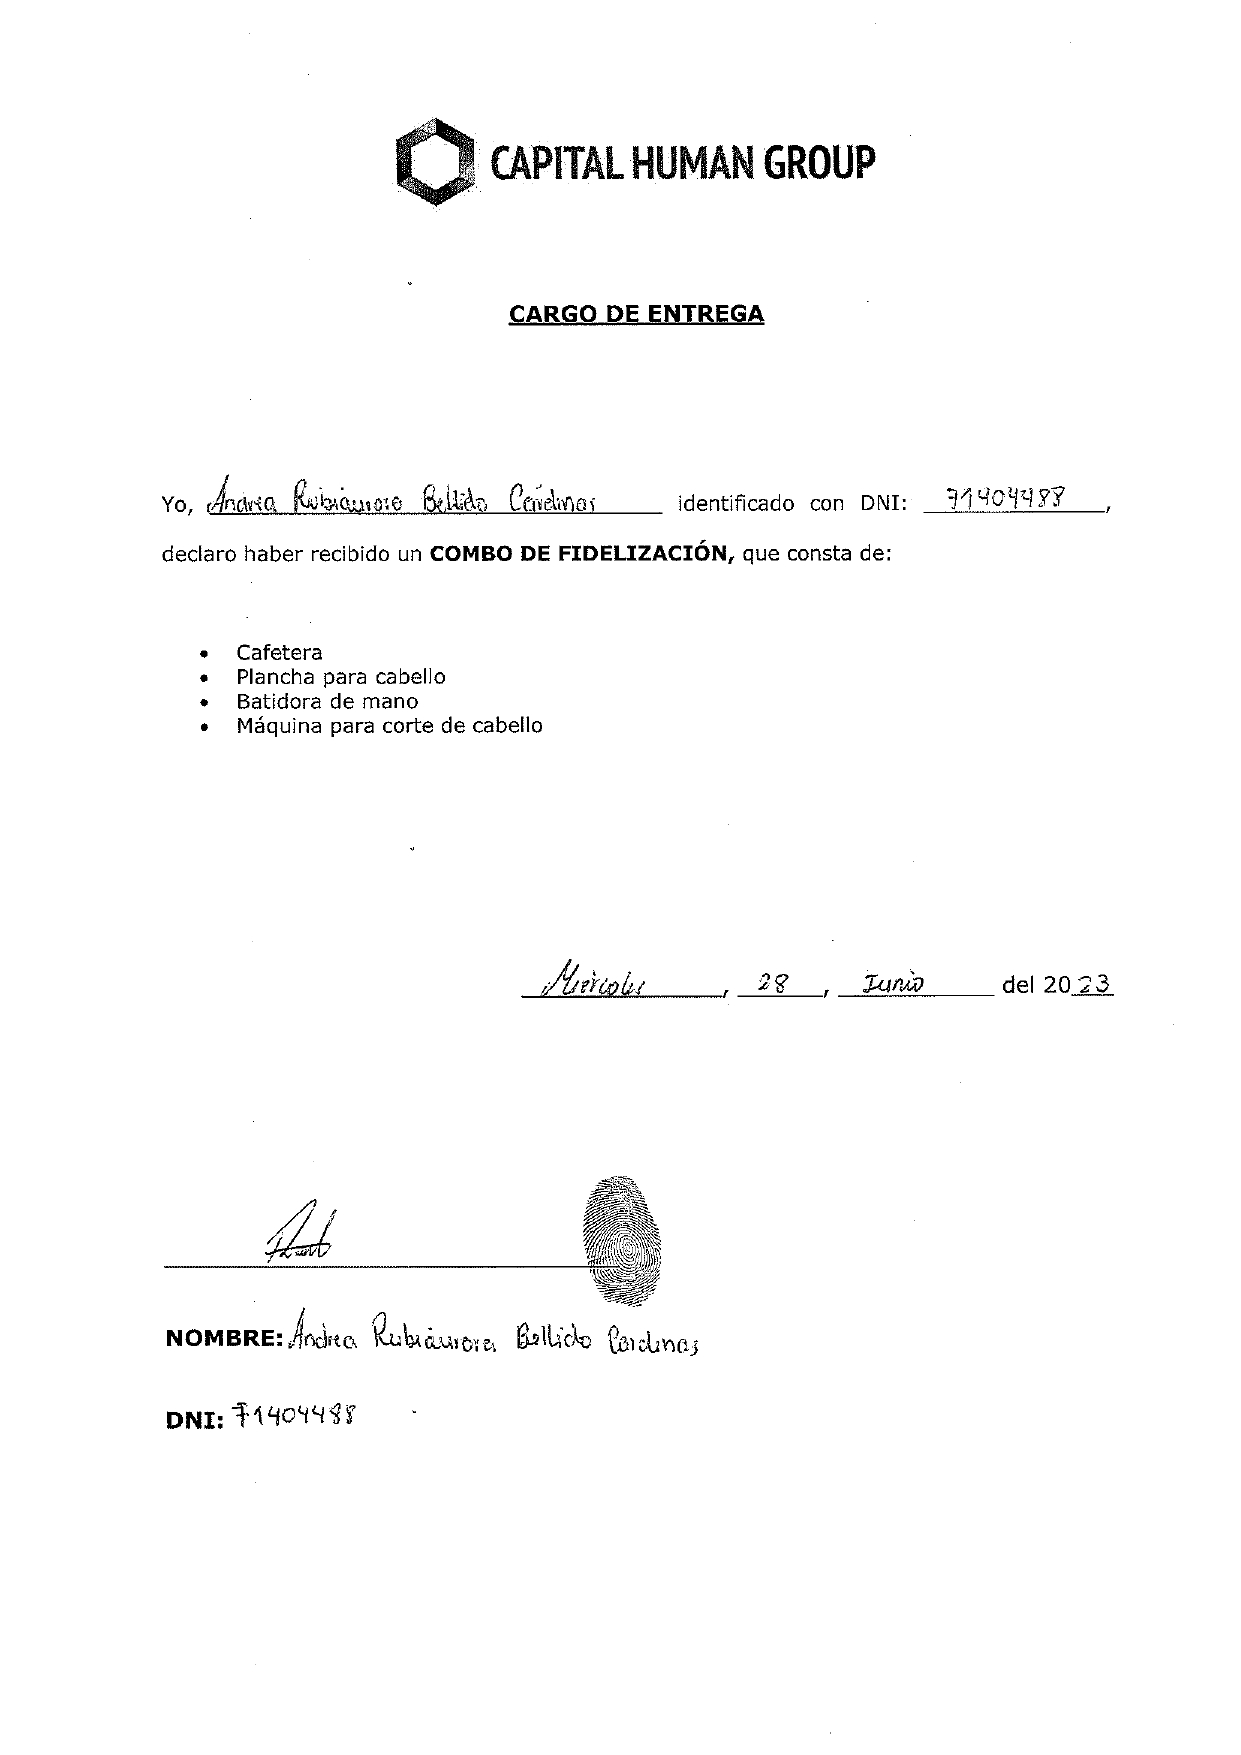 CAPITAL HUMAN GROUP
CARGO DE ENTREGA
Yo, Andrea Rubiaurora Bellido Cardenas identificado con DNI: 71404488,
declaro haber recibido un COMBO DE FIDELIZACIÓN, que consta de:
• Cafetera
• Plancha para cabello
• Batidora de mano
• Máquina para corte de cabello
Miércoles, 28, Junio del 2023
NOMBRE: Andrea Rubiaurora Bellido Cardenas
DNI: 71404488